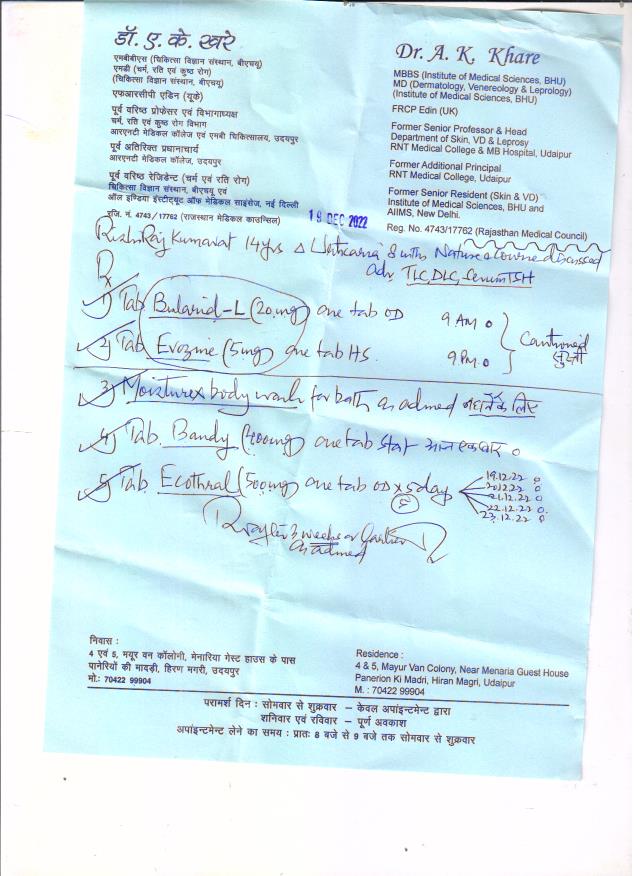 डॉ. ए. के. खरे
एमबीबीएस (चिकित्सा विज्ञान संस्थान, बीएचयू)
एमडी (चर्म, रति एवं कुष्ठ रोग)
(चिकित्सा विज्ञान संस्थान, बीएचयू)
एफआरसीपी एडिन (यूके)
पूर्व वरिष्ठ प्रोफेसर एवं विभागाध्यक्ष
चर्म, रति एवं कुष्ठ रोग विभाग
आरएनटी मेडिकल कॉलेज एवं एमबी चिकित्सालय, उदयपुर
पूर्व अतिरिक्त प्रधानाचार्य
आरएनटी मेडिकल कॉलेज, उदयपुर
पूर्व वरिष्ठ रेजिडेन्ट (चर्म एवं रति रोग)
चिकित्सा विज्ञान संस्थान, बीएचयू एवं
ऑल इण्डिया इंस्टीट्यूट ऑफ मेडिकल साइंसेज, नई दिल्ली
रजि. नं. 4743/17762 (राजस्थान मेडिकल काउन्सिल)
Dr. A. K. Khare
MBBS (Institute of Medical Sciences, BHU)
MD (Dermatology, Venereology & Leprology)
(Institute of Medical Sciences, BHU)
FRCP Edin (UK)
Former Senior Professor & Head
Department of Skin, VD & Leprosy
RNT Medical College & MB Hospital, Udaipur
Former Additional Principal
RNT Medical College, Udaipur
Former Senior Resident (Skin & VD)
Institute of Medical Sciences, BHU and
AIIMS, New Delhi.
Reg. No. 4743/17762 (Rajasthan Medical Council)
19 DEC 2022
14yrs Δ Urticaria Nature & course discussed
Adv. TLC, DLC, Serum TSH
Rx
1) Tab (20mg) one tab OD 9 AM
2) Tab (5mg) one tab HS. 9 P.M. Cautioned सुस्ती
3) Moisturex body wash for bath as advised नहाने के लिए
4) Tab. Bandy (400mg) one tab stat आज एक बार
5) Tab Ecothral (500mg) one tab OD x 5 day
19.12.22
20.12.22
21.12.22
22.12.22
23.12.22
3 weeks or Earlier
as advised
निवास :
4 एवं 5, मयूर वन कॉलोनी, मेनारिया गेस्ट हाउस के पास
पानेरियों की मादड़ी, हिरण मगरी, उदयपुर
मो.: 70422 99904
Residence :
4 & 5, Mayur Van Colony, Near Menaria Guest House
Panerion Ki Madri, Hiran Magri, Udaipur
M. : 70422 99904
परामर्श दिन : सोमवार से शुक्रवार – केवल अपांइन्टमेन्ट द्वारा
शनिवार एवं रविवार – पूर्ण अवकाश
अपांइन्टमेन्ट लेने का समय : प्रातः 8 बजे से 9 बजे तक सोमवार से शुक्रवार